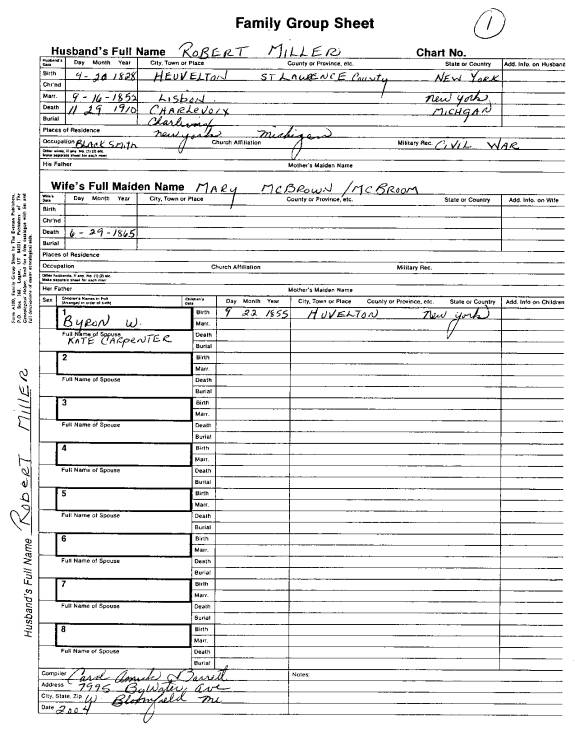 Family Group Sheet
1
Husband's Full Name ROBERT MILLER Chart No.
Husband's Data Day Month Year City, Town or Place County or Province, etc. State or Country Add. Info. on Husband
Birth 4-20 1828 HEUVELTON ST LAWRENCE County NEW YORK
Chr'nd
Marr. 9-16-1852 LISBON New York
Death 11 29 1910 CHARLEVOIX MICHGAN
Burial
Places of Residence New York Michigan
Occupation BLACK SMITH Church Affiliation Military Rec. CIVIL WAR
Other wives, if any. No. (1) (2) etc.
Make separate sheet for each marr.
His Father Mother's Maiden Name
Wife's Full Maiden Name MARY McBROWN / McBROOM
Wife's Data Day Month Year City, Town or Place County or Province, etc. State or Country Add. Info. on Wife
Birth
Chr'nd
Death 6-29-1865
Burial
Places of Residence
Occupation Church Affiliation Military Rec.
Other husbands, if any. No. (1) (2) etc.
Make separate sheet for each marr.
Her Father Mother's Maiden Name
Sex Children's Names in Full (Arranged in order of birth) Children's Data Day Month Year City, Town or Place County or Province, etc. State or Country Add. Info on Children
1 Birth 9 22 1855 HUVELTON New York
BYRON W. Marr.
Full Name of Spouse Death
KATE CARPENTER Burial
2 Birth
Marr.
Full Name of Spouse Death
Burial
3 Birth
Marr.
Full Name of Spouse Death
Burial
4 Birth
Marr.
Full Name of Spouse Death
Burial
5 Birth
Marr.
Full Name of Spouse Death
Burial
6 Birth
Marr.
Full Name of Spouse Death
Burial
7 Birth
Marr.
Full Name of Spouse Death
Burial
8 Birth
Marr.
Full Name of Spouse Death
Burial
Compiler Carol Barrett Notes:
Address 7995 ByWater Ave
City, State, Zip W. Bloomfield
Date 2004
Husband's Full Name ROBERT MILLER